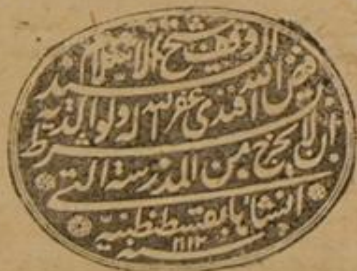 وقف شيخ الاسلام السيد
فيض الله افندى غفر الله له ولوالديه
بشرط
ان لا يخرج من المدرسة التى
انشاها بقسطنطنيه
سنه ١١١٢